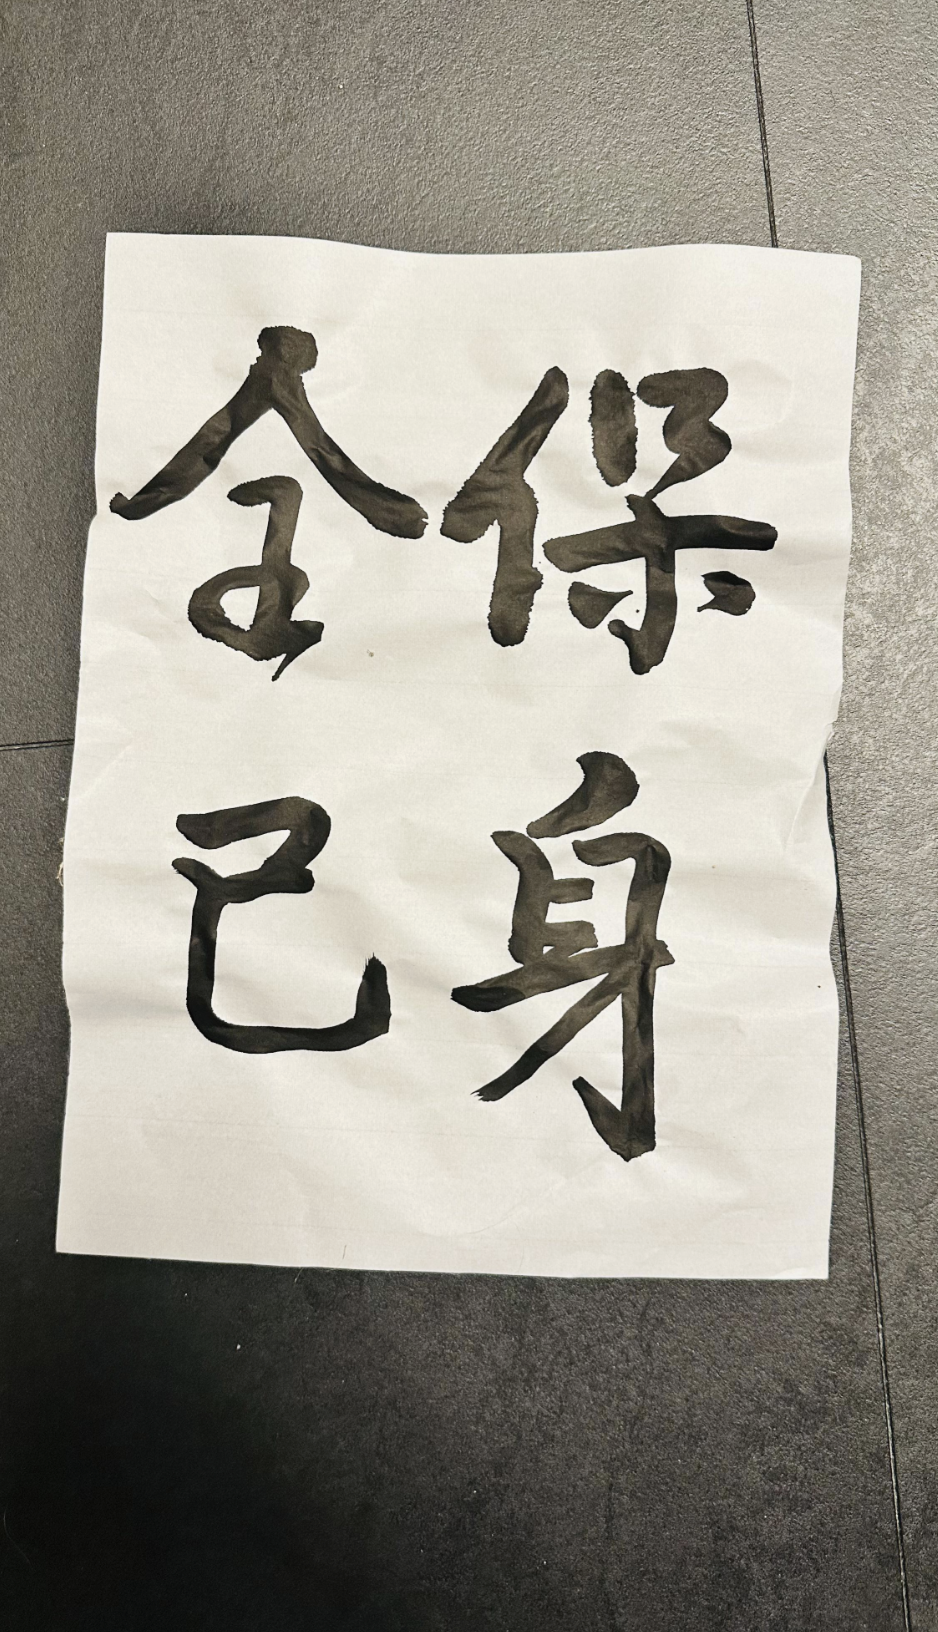 保身
全己